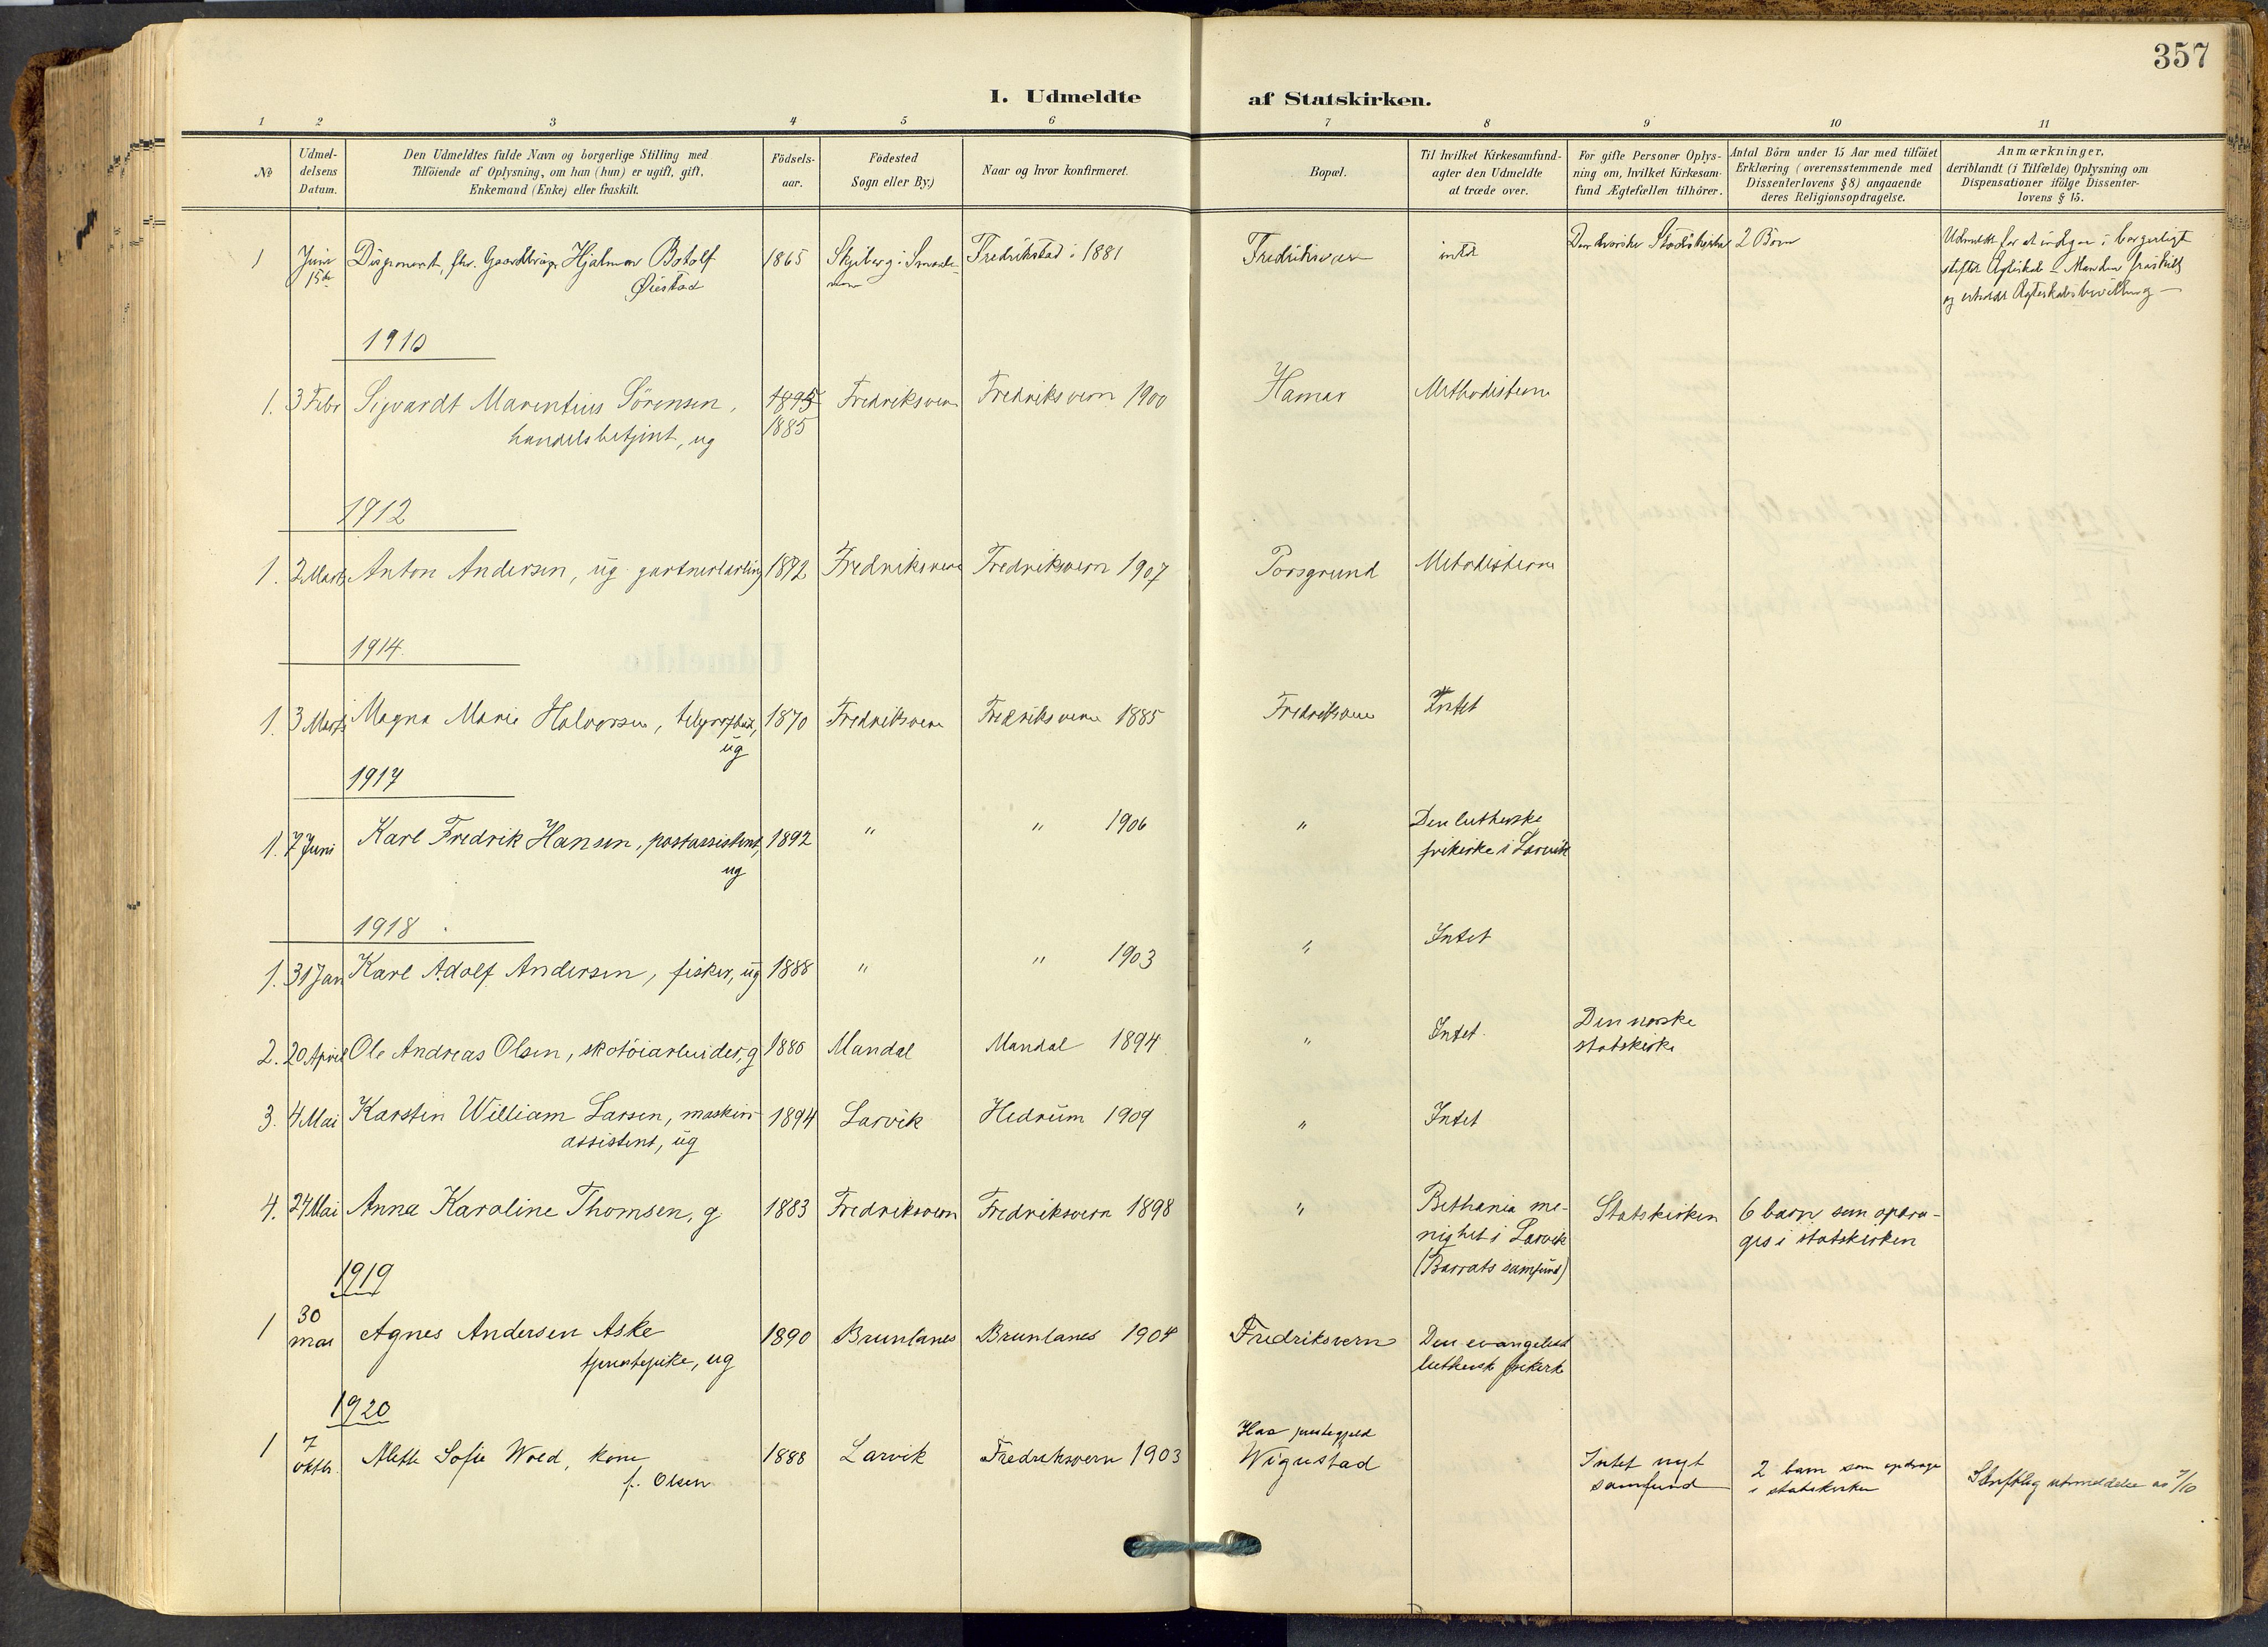 357
I. Udmeldte af Statskirken.
1 2 3 4 5 6 7 8 9 10 11
No
Udmel-
delsens
Datum.
Den Udmeldtes fulde Navn og borgerlige Stilling med
Tilföiende af Oplysning, om han (hun) er ugift, gift,
Enkemand (Enke) eller fraskilt.
Födsels-
aar.
Födested
Sogn eller By.)
Naar og hvor konfirmeret.
Bopæl.
Til hvilket Kirkesamfund-
agter den Udmeldte
at træde over.
For gifte Personer Oplys-
ning om, hvilket Kirkesam-
fund Ægtefællen tilhörer.
Antal Börn under 15 Aar med tilföiet
Erklæring (overensstemmende med
Dissenterlovens § 8) angaaende
deres Religionsopdragelse.
Anmærkninger,
deriblandt (i Tilfælde) Oplysning om
Dispensationer ifölge Dissenter-
lovens § 15.
1 Juni Disponent, Hjalmar Botolf 1865 Skjeberg i Smaale- Fredrikstad i 1881 Fredriksvern intet Den norske Statskirke 2 Børn Udmeldt for at indgaa i borgerligt
15de Øiestad nene stiftet Ægteskab - Manden fraskilt
og erholdt Ægteskabsbevilling -
1910
1. 3 Febr Sigvardt Marentius Sörensen, 1895 Fredriksvern Fredriksvern 1900 Hamar Methodisterne
handelsbetjent, ug 1885
1912
1. 2 Marts Anton Andersen, ug gartnerlærling 1892 Fredriksvern Fredriksvern 1907 Porsgrund Metodisterne
1914.
1. 3 Marts Magna Marie Halvorsen, telegrafist, 1870 Fredriksvern Fredriksvern 1885 Fredriksvern Intet
ug
1917
1. 7 Juni Karl Fredrik Hansen, postassistent, 1892 " " 1906 " Den lutherske
ug frikirke i Larvik
1918
1. 31 Jan Karl Adolf Andersen, fisker, ug 1888 " " 1903 " Intet
2. 20 April Ole Andreas Olsen, skotöiarbeider, g 1880 Mandal Mandal 1894 " Intet. Den norske
statskirke
3. 4 Mai Karsten William Larsen, maskin- 1894 Larvik Hedrum 1909 " Intet
assistent, ug
4. 24 Mai Anna Karoline Thomsen, g 1883 Fredriksvern Fredriksvern 1898 " Bethania me- Statskirken 6 barn som opdra-
nighet i Larvik ges i statskirken
(Barrats samfund)
1919
1 30 Agnes Andersen Aske 1890 Brunlanes Brunlanes 1904 Fredriksvern Den evangelisk
mai tjenestepike, ug luthersk frikirke
1920
1 7 Aleth Sofie Wold, kone 1888 Larvik Fredriksvern 1903 prestegjeld
oktbr. f. Olsen Wigustad Intet nyt
samfund 2 barn som opdrages
i statskirken Skriftlig utmeldelse av 7/10